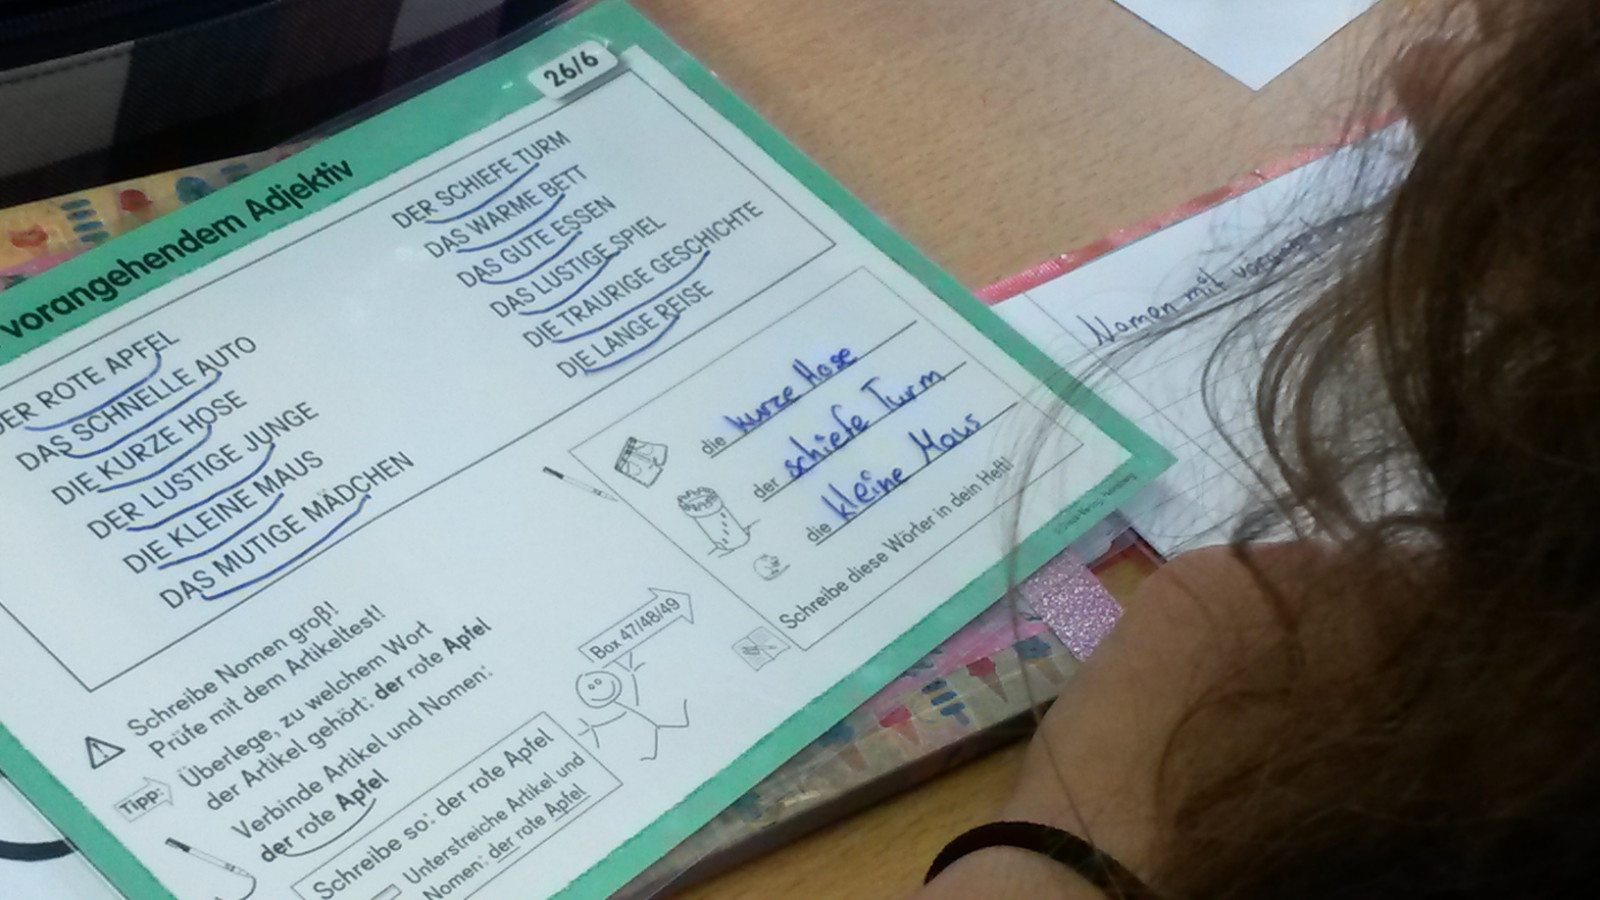 26/6
vorangehendem Adjektiv
DER ROTE APFEL
DAS SCHNELLE AUTO
DIE KURZE HOSE
DER LUSTIGE JUNGE
DIE KLEINE MAUS
DAS MUTIGE MÄDCHEN
DER SCHIEFE TURM
DAS WARME BETT
DAS GUTE ESSEN
DAS LUSTIGE SPIEL
DIE TRAURIGE GESCHICHTE
DIE LANGE REISE
die kurze Hose
der schiefe Turm
die kleine Maus
Schreibe diese Wörter in dein Heft!
Schreibe Nomen groß!
Prüfe mit dem Artikeltest!
Tipp:
Überlege, zu welchem Wort
der Artikel gehört: der rote Apfel
Verbinde Artikel und Nomen:
der rote Apfel
Box 47/48/49
Schreibe so: der rote Apfel
Unterstreiche Artikel und
Nomen: der rote Apfel
Nomen mit